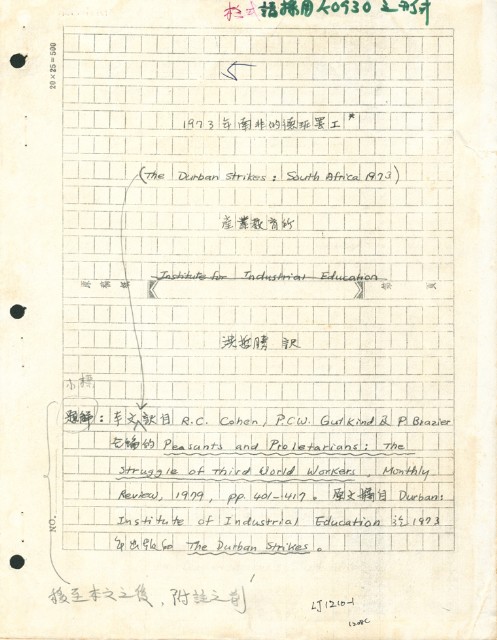 格式請採用40930之形式
20×25=500
1973年南非的德班罷工*
(The Durban Strikes: South Africa 1973)
產業教育所
Institute for Industrial Education
洪哲勝 訳
小標
題解: 本文訳自 R.C. Cohen, P.C.W. Gutkind 及 P. Brazier
主編的 Peasants and Proletarians: The
Struggle of Third World Workers, Monthly
Review, 1979, pp. 401-417。原文摘自 Durbans
Institute of Industrial Education 於1973
年出版的 The Durban Strikes。
NO.
接至本文之後, 附註之前
LJ1210-1